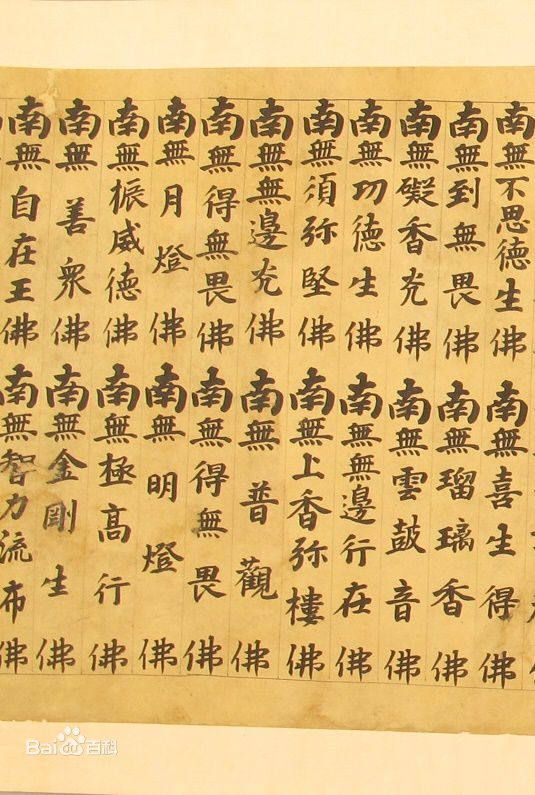 南無不思德生佛 南無喜生得佛
南無到無畏佛 南無瑠璃香佛
南無礙香光佛 南無雲鼓音佛
南無功德生佛 南無無邊行在佛
南無須弥堅佛 南無上香弥樓佛
南無無邊光佛 南無普觀佛
南無得無畏佛 南無得無畏佛
南無月燈佛 南無明燈佛
南無振威德佛 南無極高行佛
南無善衆佛 南無金剛生佛
南無自在王佛 南無智力流布佛
Bai百科